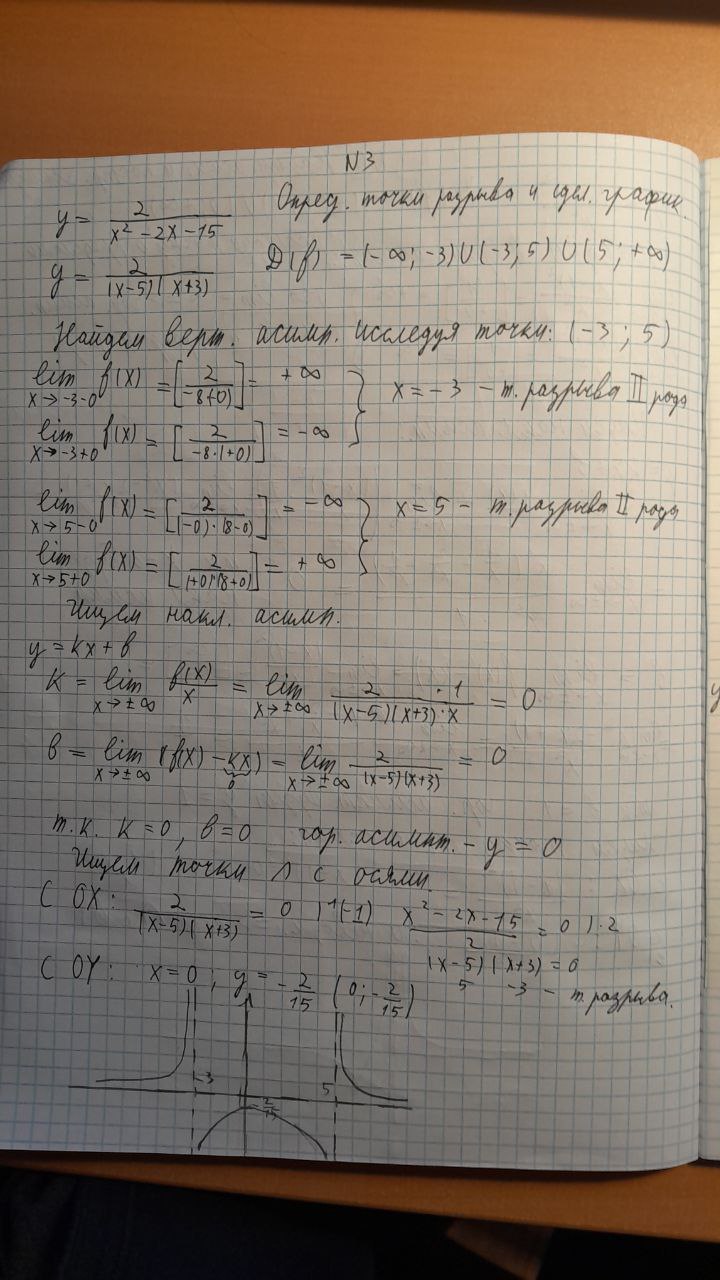 N3
y = 2/(x² - 2x - 15) Опред. точки разрыва и сдел. график.
y = 2/((x-5)(x+3)) D(f) = (-∞; -3)∪(-3; 5)∪(5; +∞)
Найдем верт. асимп. исследуя точки: (-3; 5)
lim x→-3-0 f(x) = [2/(-8+0)] = +∞
x = -3 - т. разрыва II рода
lim x→-3+0 f(x) = [2/(-8·(+0)] = -∞
lim x→5-0 f(x) = [2/((-0)·(8-0)] = -∞
x = 5 - т. разрыва II рода
lim x→5+0 f(x) = [2/((+0)(8+0)] = +∞
Ищем накл. асимп.
y = kx + b
K = lim x→±∞ f(x)/x = lim x→±∞ 2·1/((x-5)(x+3)·x = 0
b = lim x→±∞ (f(x) - kx) = lim x→±∞ 2/((x-5)(x+3) = 0
0
т.к. K = 0, b = 0 гор. асимпт. - y = 0
Ищем точки Λ с осями.
С OX: 2/((x-5)(x+3) = 0 |^(-1) (x² - 2x - 15)/2 = 0 |·2
(x-5)(x+3) = 0
С OY: x = 0; y = -2/15 (0; -2/15) 5 -3 - т. разрыва.
-3 5
-2/15